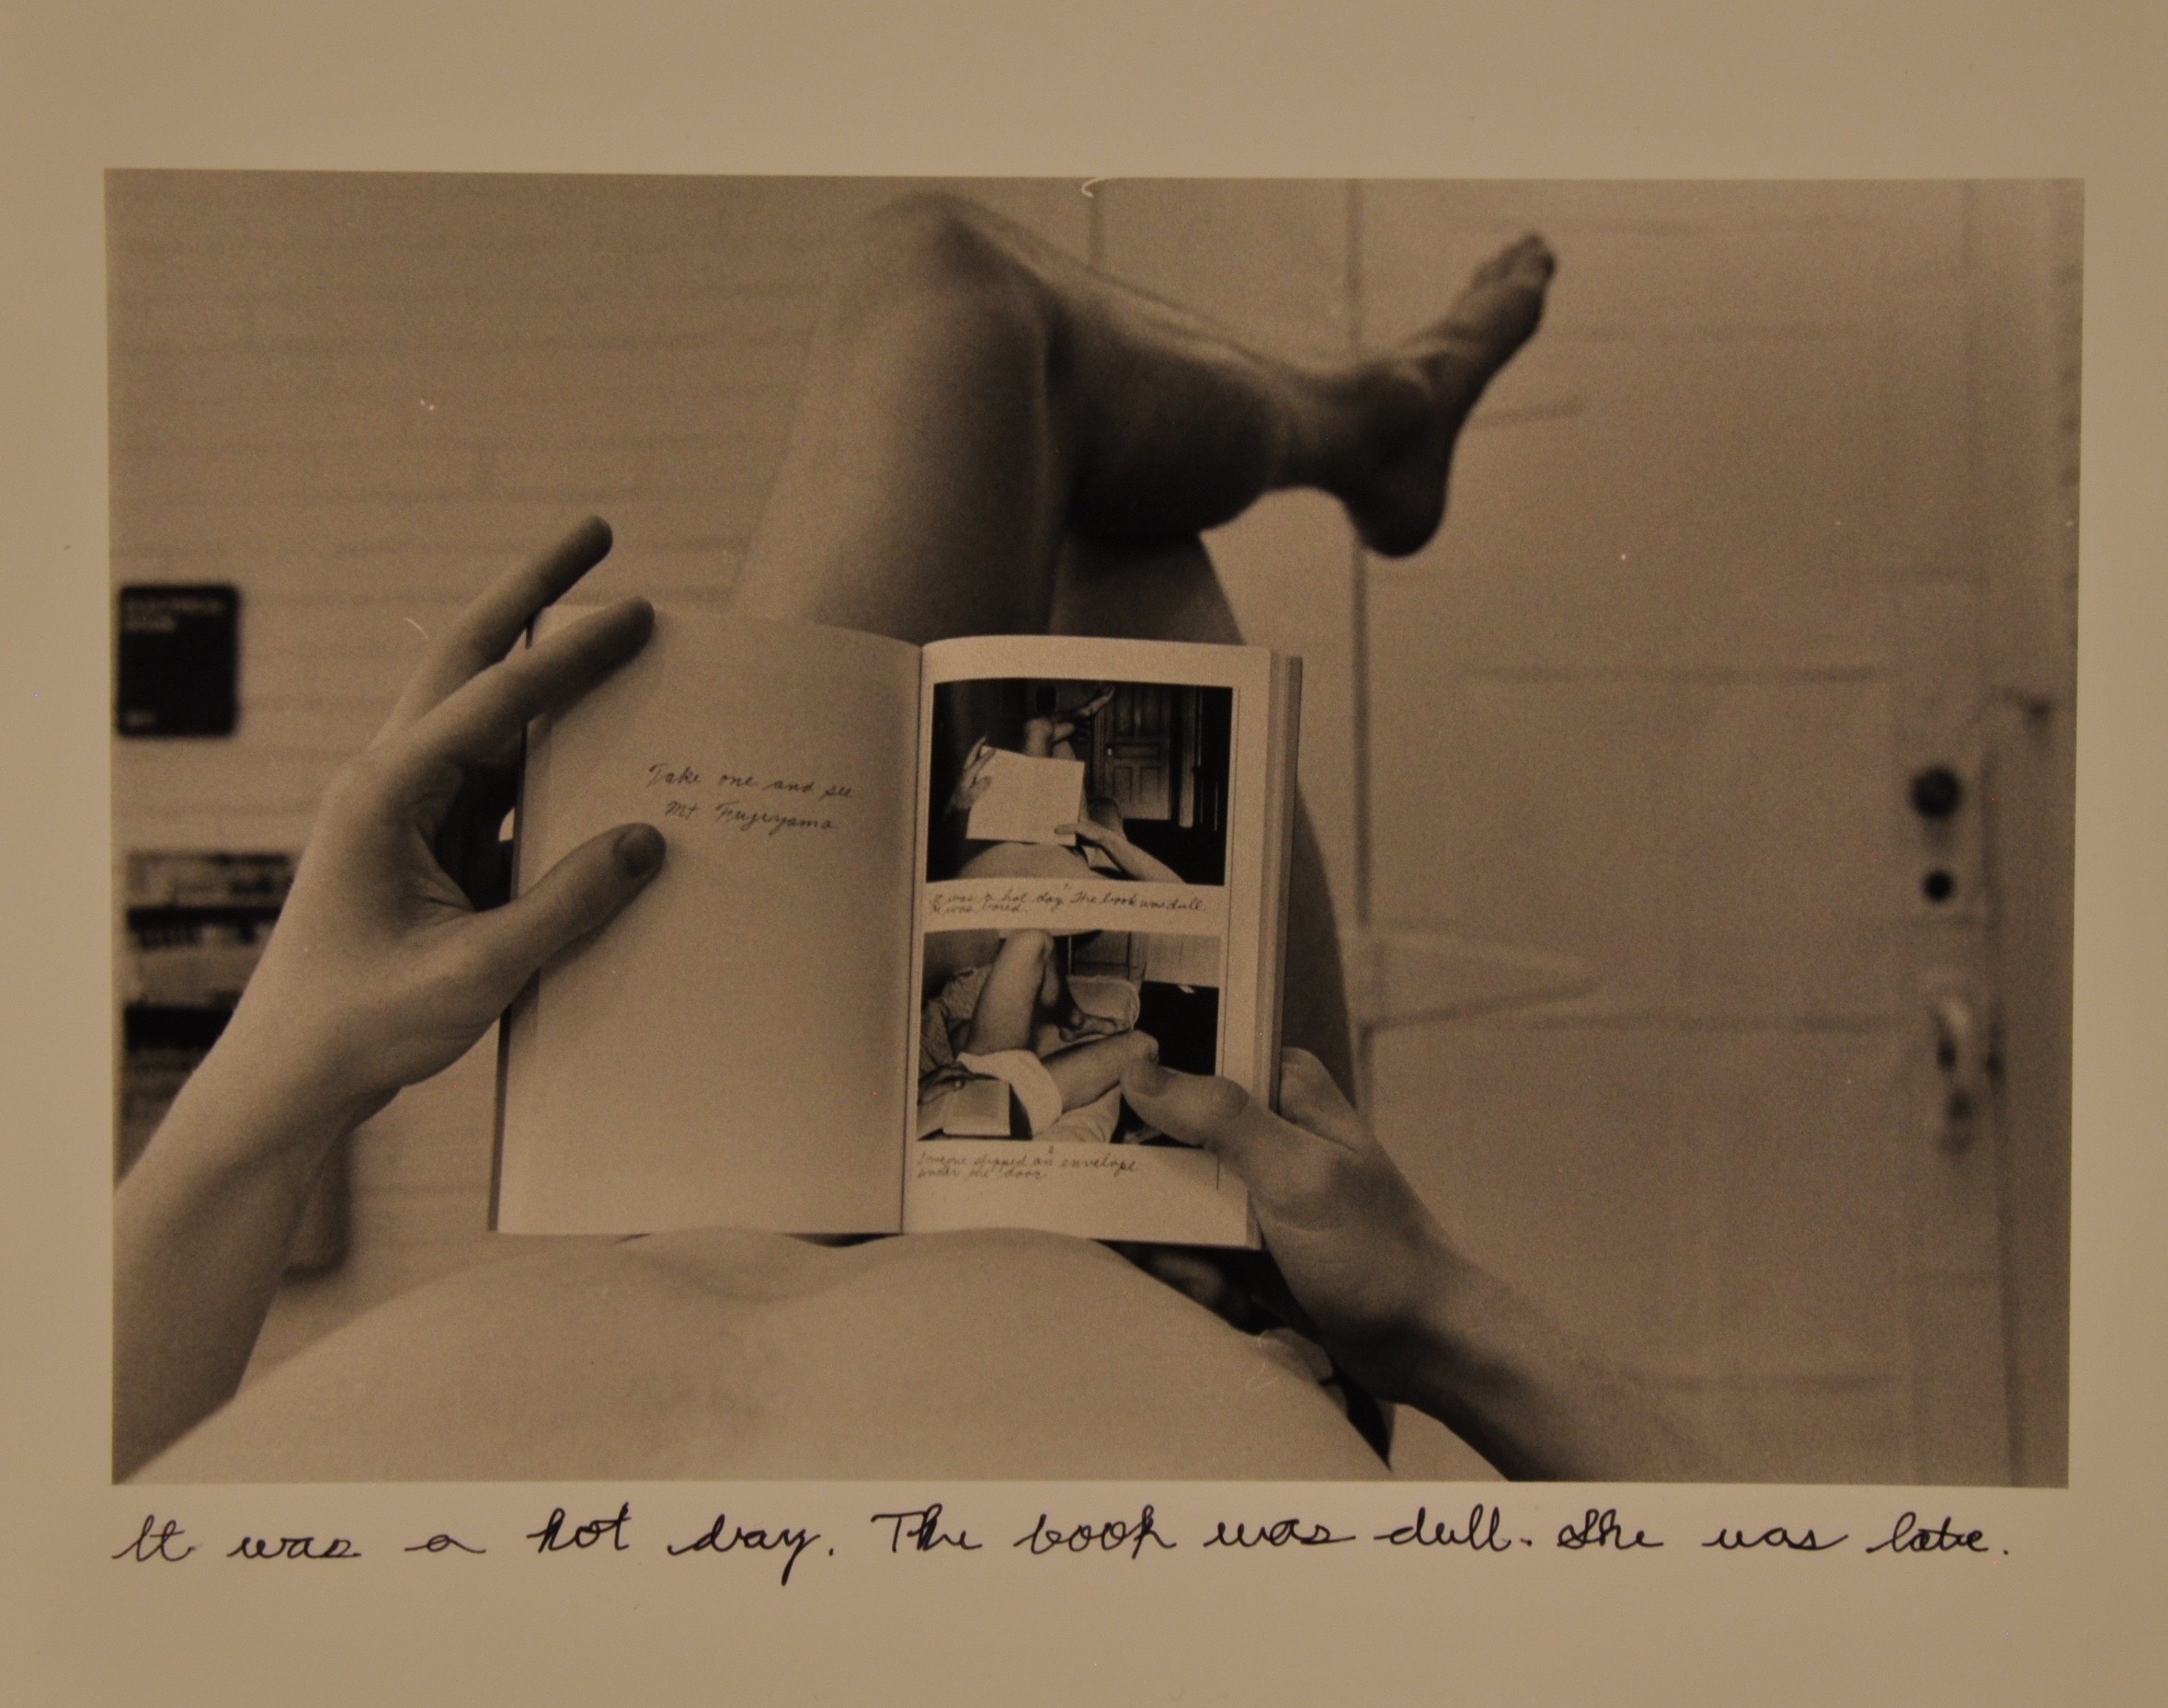 Take one and see
Mt Fujiyama
It was a hot day. The book was dull.
He was bored.
Someone slipped an envelope
under the door
It was a hot day. The book was dull. She was late.